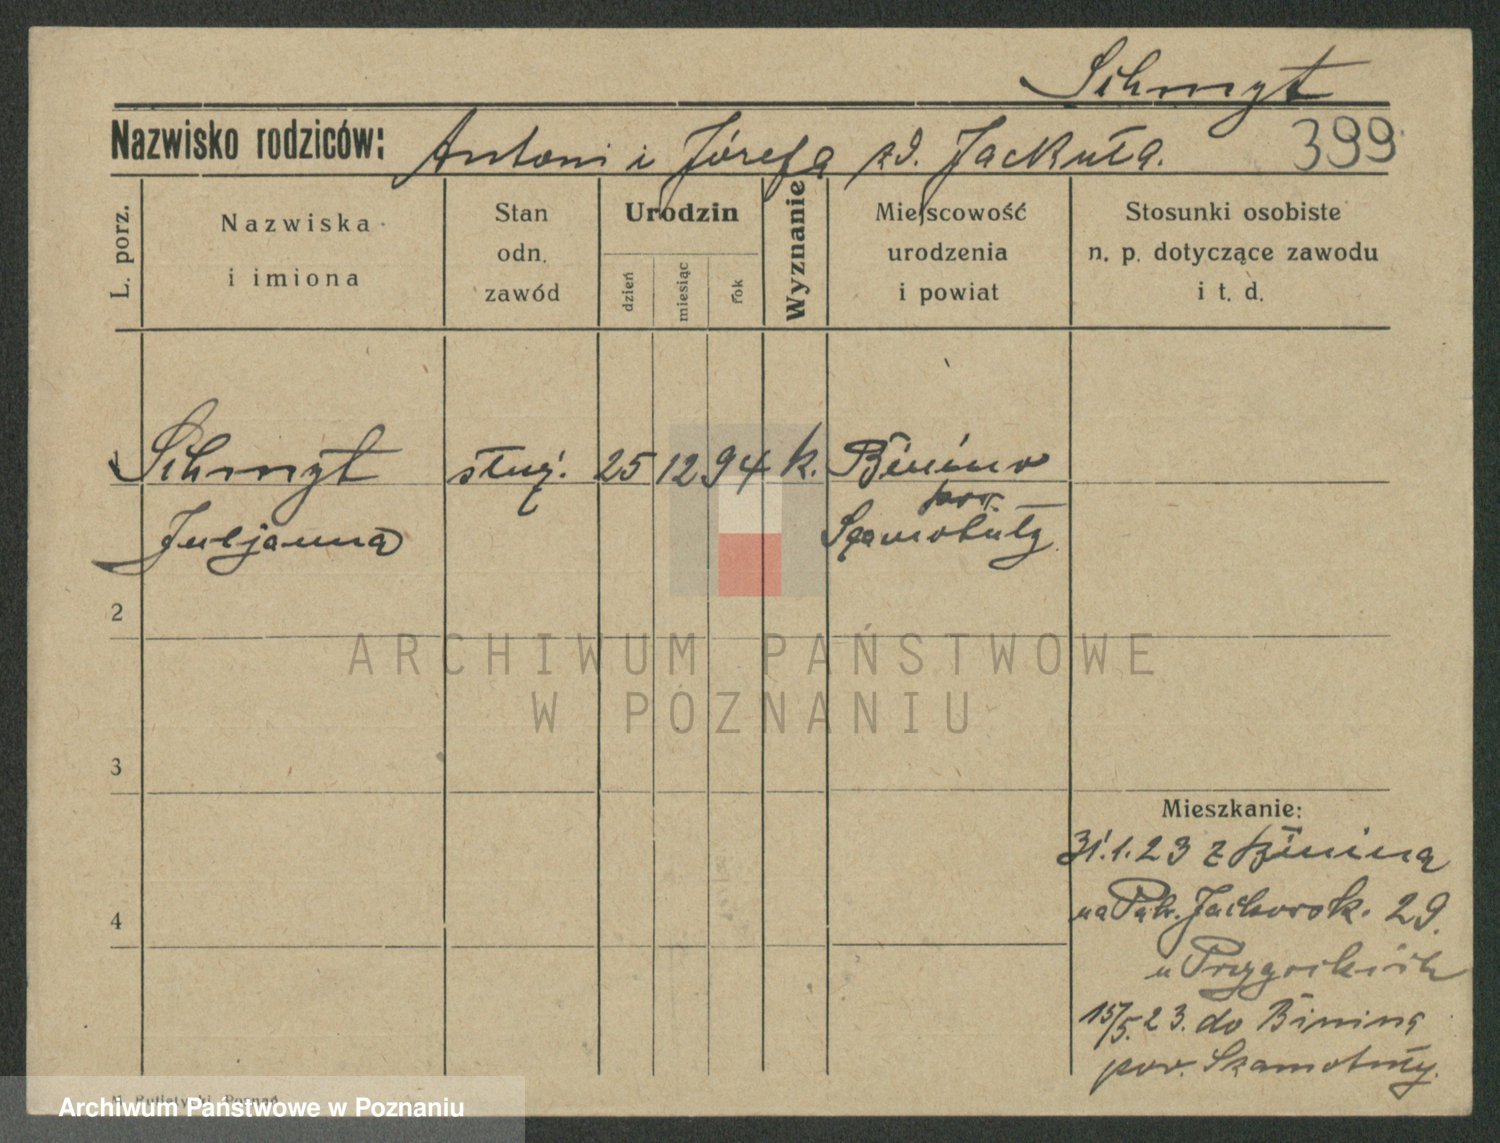 Schmyt
Nazwisko rodziców: Antoni i Józefa zd. Jackuła. 399
L. porz.
Nazwiska i imiona
Stan odn. zawód
Urodzin
dzień
miesiąc
rok
Wyznanie
Miejscowość urodzenia i powiat
Stosunki osobiste n. p. dotyczące zawodu i t. d.
1 Schmyt służ. 25 12 94 k. Binino
pow.
Juljanna Szamotuły
2
ARCHIWUM PAŃSTWOWE
W POZNANIU
3
Mieszkanie:
31.1.23 z Binina
4
na 29.
u
15/5.23. do Binina
pow. Szamotuły.
Archiwum Państwowe w Poznaniu